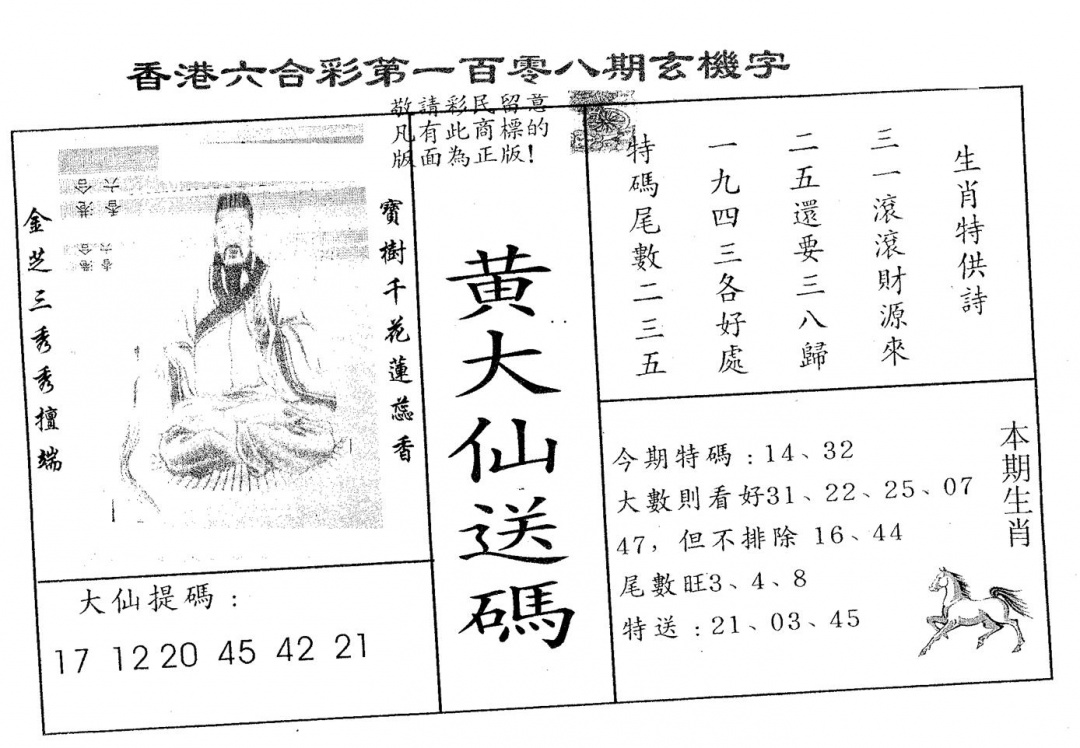 香港六合彩第一百零八期玄機字
敬請彩民留意
凡有此商標的
版面為正版!
寶樹千花蓮蕊香
金芝三秀秀擅端
黃大仙送碼
生肖特供詩
三一滾滾財源來
二五還要三八歸
一九四三各好處
特碼尾數二三五
大仙提碼:
17 12 20 45 42 21
今期特碼:14、32
大數則看好31、22、25、07
47,但不排除 16、44
尾數旺3、4、8
特送:21、03、45
本期生肖